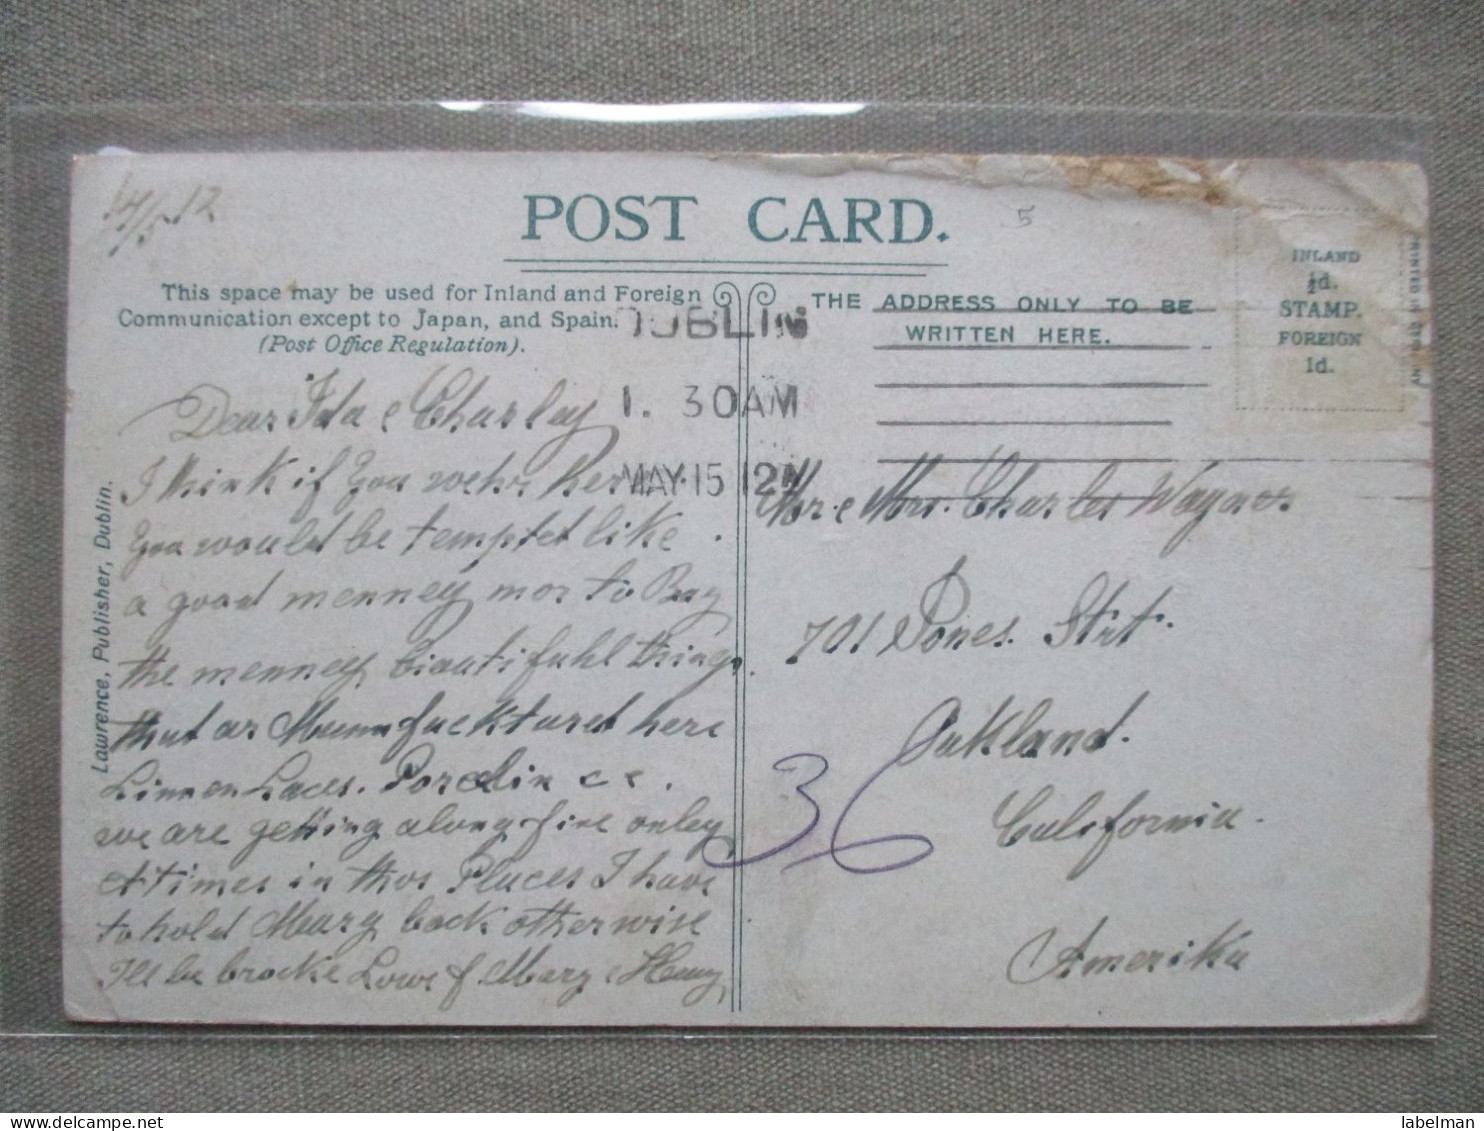 14/5 12
POST CARD.
5
This space may be used for Inland and Foreign
Communication except to Japan, and Spain.
(Post Office Regulation).
THE ADDRESS ONLY TO BE
WRITTEN HERE.
INLAND
½d.
STAMP.
FOREIGN
1d.
DUBLIN
1. 30AM
MAY 15 12
Lawrence, Publisher, Dublin.
Dear Ida & Charley
I think if you wehr her
you would be temptet like
a good menney mor to Bay
the menney biautifuhl things
that ar Mannfucktured here
Linnen Laces. Porcelin
we are getting along fine onley
at times in thos Places I have
to hold Mary back otherwise
I'll be brocke Lowe f. Mary & Henry
Mr. & Mrs. Charles Wagner
701 Jones Strt.
Oakland.
California.
Amerika
36
labelman
www.delcampe.net